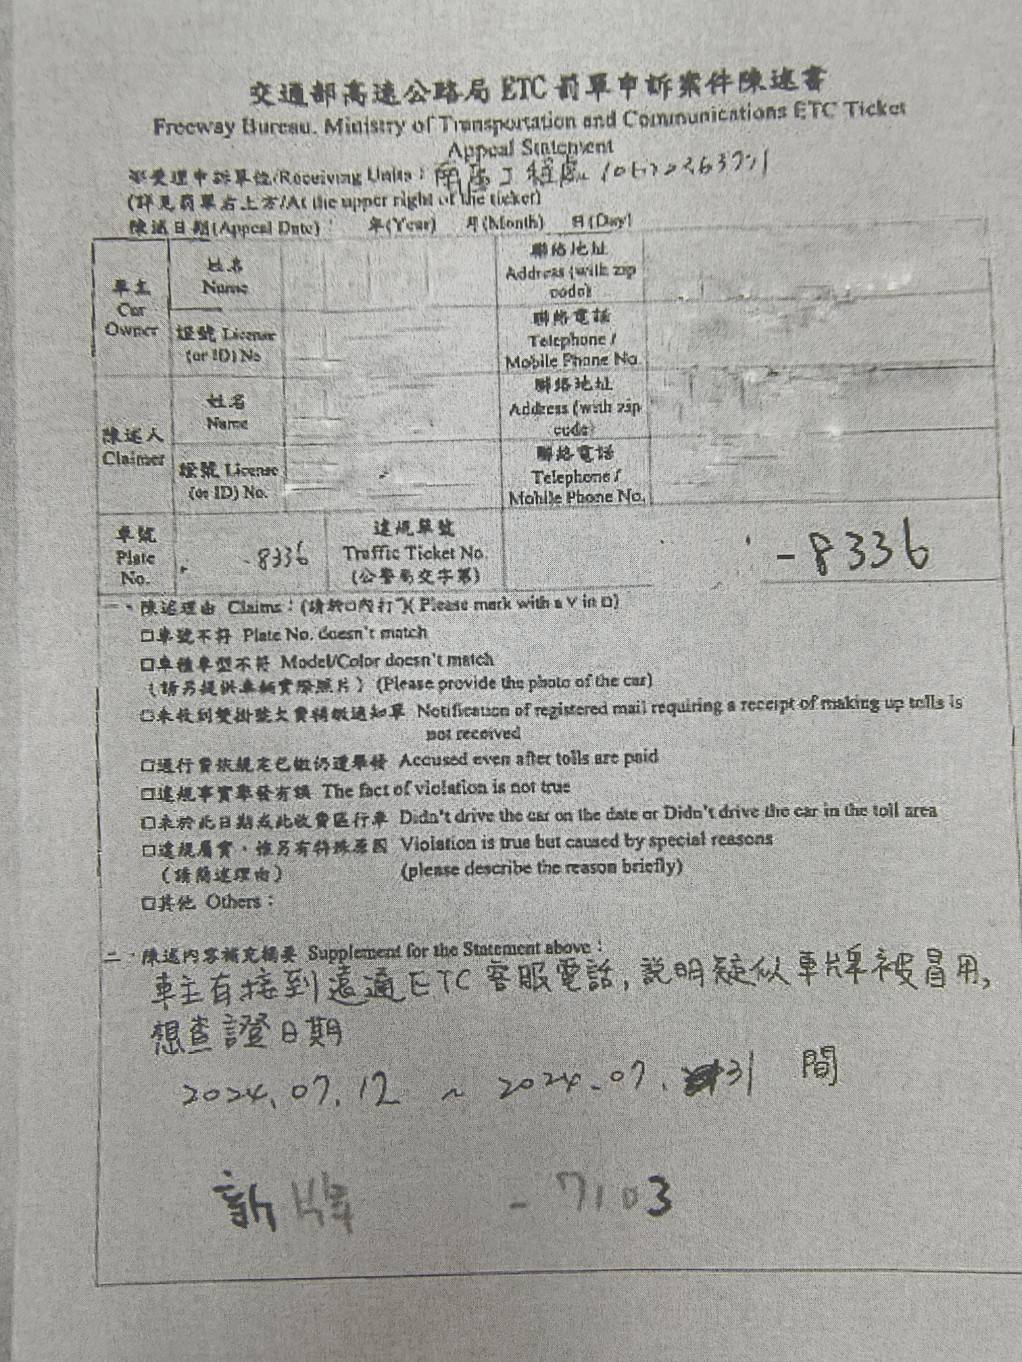 交通部高速公路局 ETC 罰單申訴案件陳述書
Freeway Bureau, Ministry of Transportation and Communications ETC Ticket
Appeal Statement
受理申訴單位/Receiving Units：南區工程處
(詳見罰單右上方/At the upper right of the ticket)
陳述日期(Appeal Date) 年(Year) 月(Month) 日(Day)
車主
Car
Owner
姓名
Name
聯絡地址
Address (with zip
code)
證號 License
(or ID) No
聯絡電話
Telephone /
Mobile Phone No.
陳述人
Claimer
姓名
Name
聯絡地址
Address (with zip
code)
證號 License
(or ID) No.
聯絡電話
Telephone /
Mobile Phone No.
車號
Plate
No.
-8336
違規單號
Traffic Ticket No.
(公警局交字第)
-8336
一、陳述理由 Claims：(請於□內打ˇ)( Please mark with a V in □)
□車號不符 Plate No. doesn't match
□車種車型不符 Model/Color doesn't match
（請另提供車輛實際照片）(Please provide the photo of the car)
□未收到雙掛號欠費補繳通知單 Notification of registered mail requiring a receipt of making up tolls is
not received
□通行費依規定已繳仍遭舉發 Accused even after tolls are paid
□違規事實舉發有誤 The fact of violation is not true
□未於此日期或此收費區行車 Didn't drive the car on the date or Didn't drive the car in the toll area
□違規屬實，惟另有特殊原因 Violation is true but caused by special reasons
（請簡述理由） (please describe the reason briefly)
□其他 Others：
二、陳述內容補充摘要 Supplement for the Statement above：
車主有接到遠通ETC客服電話,說明疑似車牌被冒用,
想查證日期
2024.07.12 ~ 2024.07.31 間
新牌 -7103